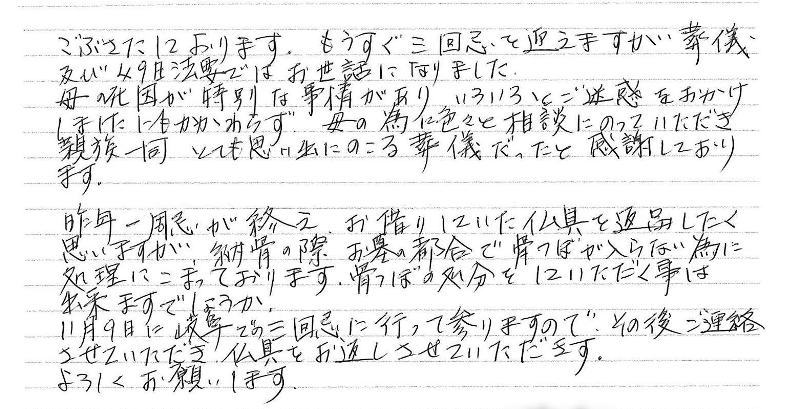 ごぶさたしております。もうすぐ三回忌を迎えますがい葬儀、
及び49日法要ではお世話になりました。
母の死因が特別な事情があり いろいろとご迷惑をおかけ
しましたにもかかわらず、母の為に色々と相談にのっていただき
親族一同 とても思い出にのこる葬儀だったと感謝しており
ます。
昨年一周忌が終え、お借りしていた仏具を返品したく
思いますがい、納骨の際 お墓の都合で骨つぼが入らない為に
処理にこまっております。骨つぼの処分をしていただく事は
出来ますでしょうか。
11月9日に岐阜での三回忌に行って参りますので、その後ご連絡
させていただき 仏具をお返しさせていただきます。
よろしくお願いします。